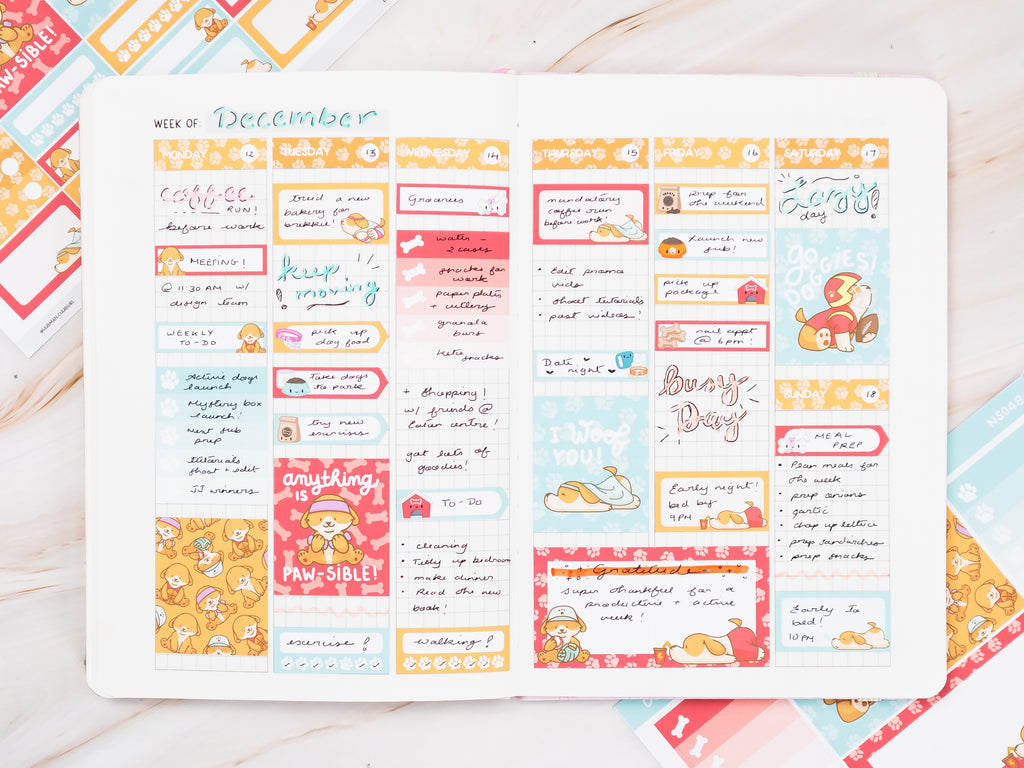 PAW-SIBLE!
WEEK OF: December
MONDAY 12
coffee
RUN!
before work
MEETING!
@ 11:30 AM w/
design team
WEEKLY
TO-DO
Active dogs
launch
Mystery box
launch!
Next sub
prep
tutorials
shoot + edit
JJ winners
TUESDAY 13
tried a new
bakery for
brekkie!
keep
moving!
pick up
dog food
Take dogs
to park
try new
exercises
anything
IS
PAW-SIBLE!
exercise!
WEDNESDAY 14
Groceries
water -
2 cases
snacks for
work
paper plates
+ cutlery
granola
bars
keto snacks
+ Shopping!
w/ friends @
Eaton centre!
got lots of
goodies!
TO-DO
• cleaning
• Tidy up bedroom
• make dinner
• Read the new
book!
walking!
THURSDAY 15
mandatory
coffee run
before work!
• Edit promo
vids
• shoot tutorials
• post videos!
Date
night
I WOOF
YOU!
FRIDAY 16
Prep for
the weekend
Launch new
sub!
pick up
package
nail appt
@ 6pm!
busy
Day
Early night!
bed by
9 PM
Gratitude
super thankful for a
productive + active
week!
SATURDAY 17
Lazy
day!
GO
DOGGIES!
SUNDAY 18
MEAL
PREP
• Plan meals for
the week
• prep onions
• garlic
• chop up lettuce
• prep sandwiches
• prep snacks
Early to
bed!
10 PM
NS048